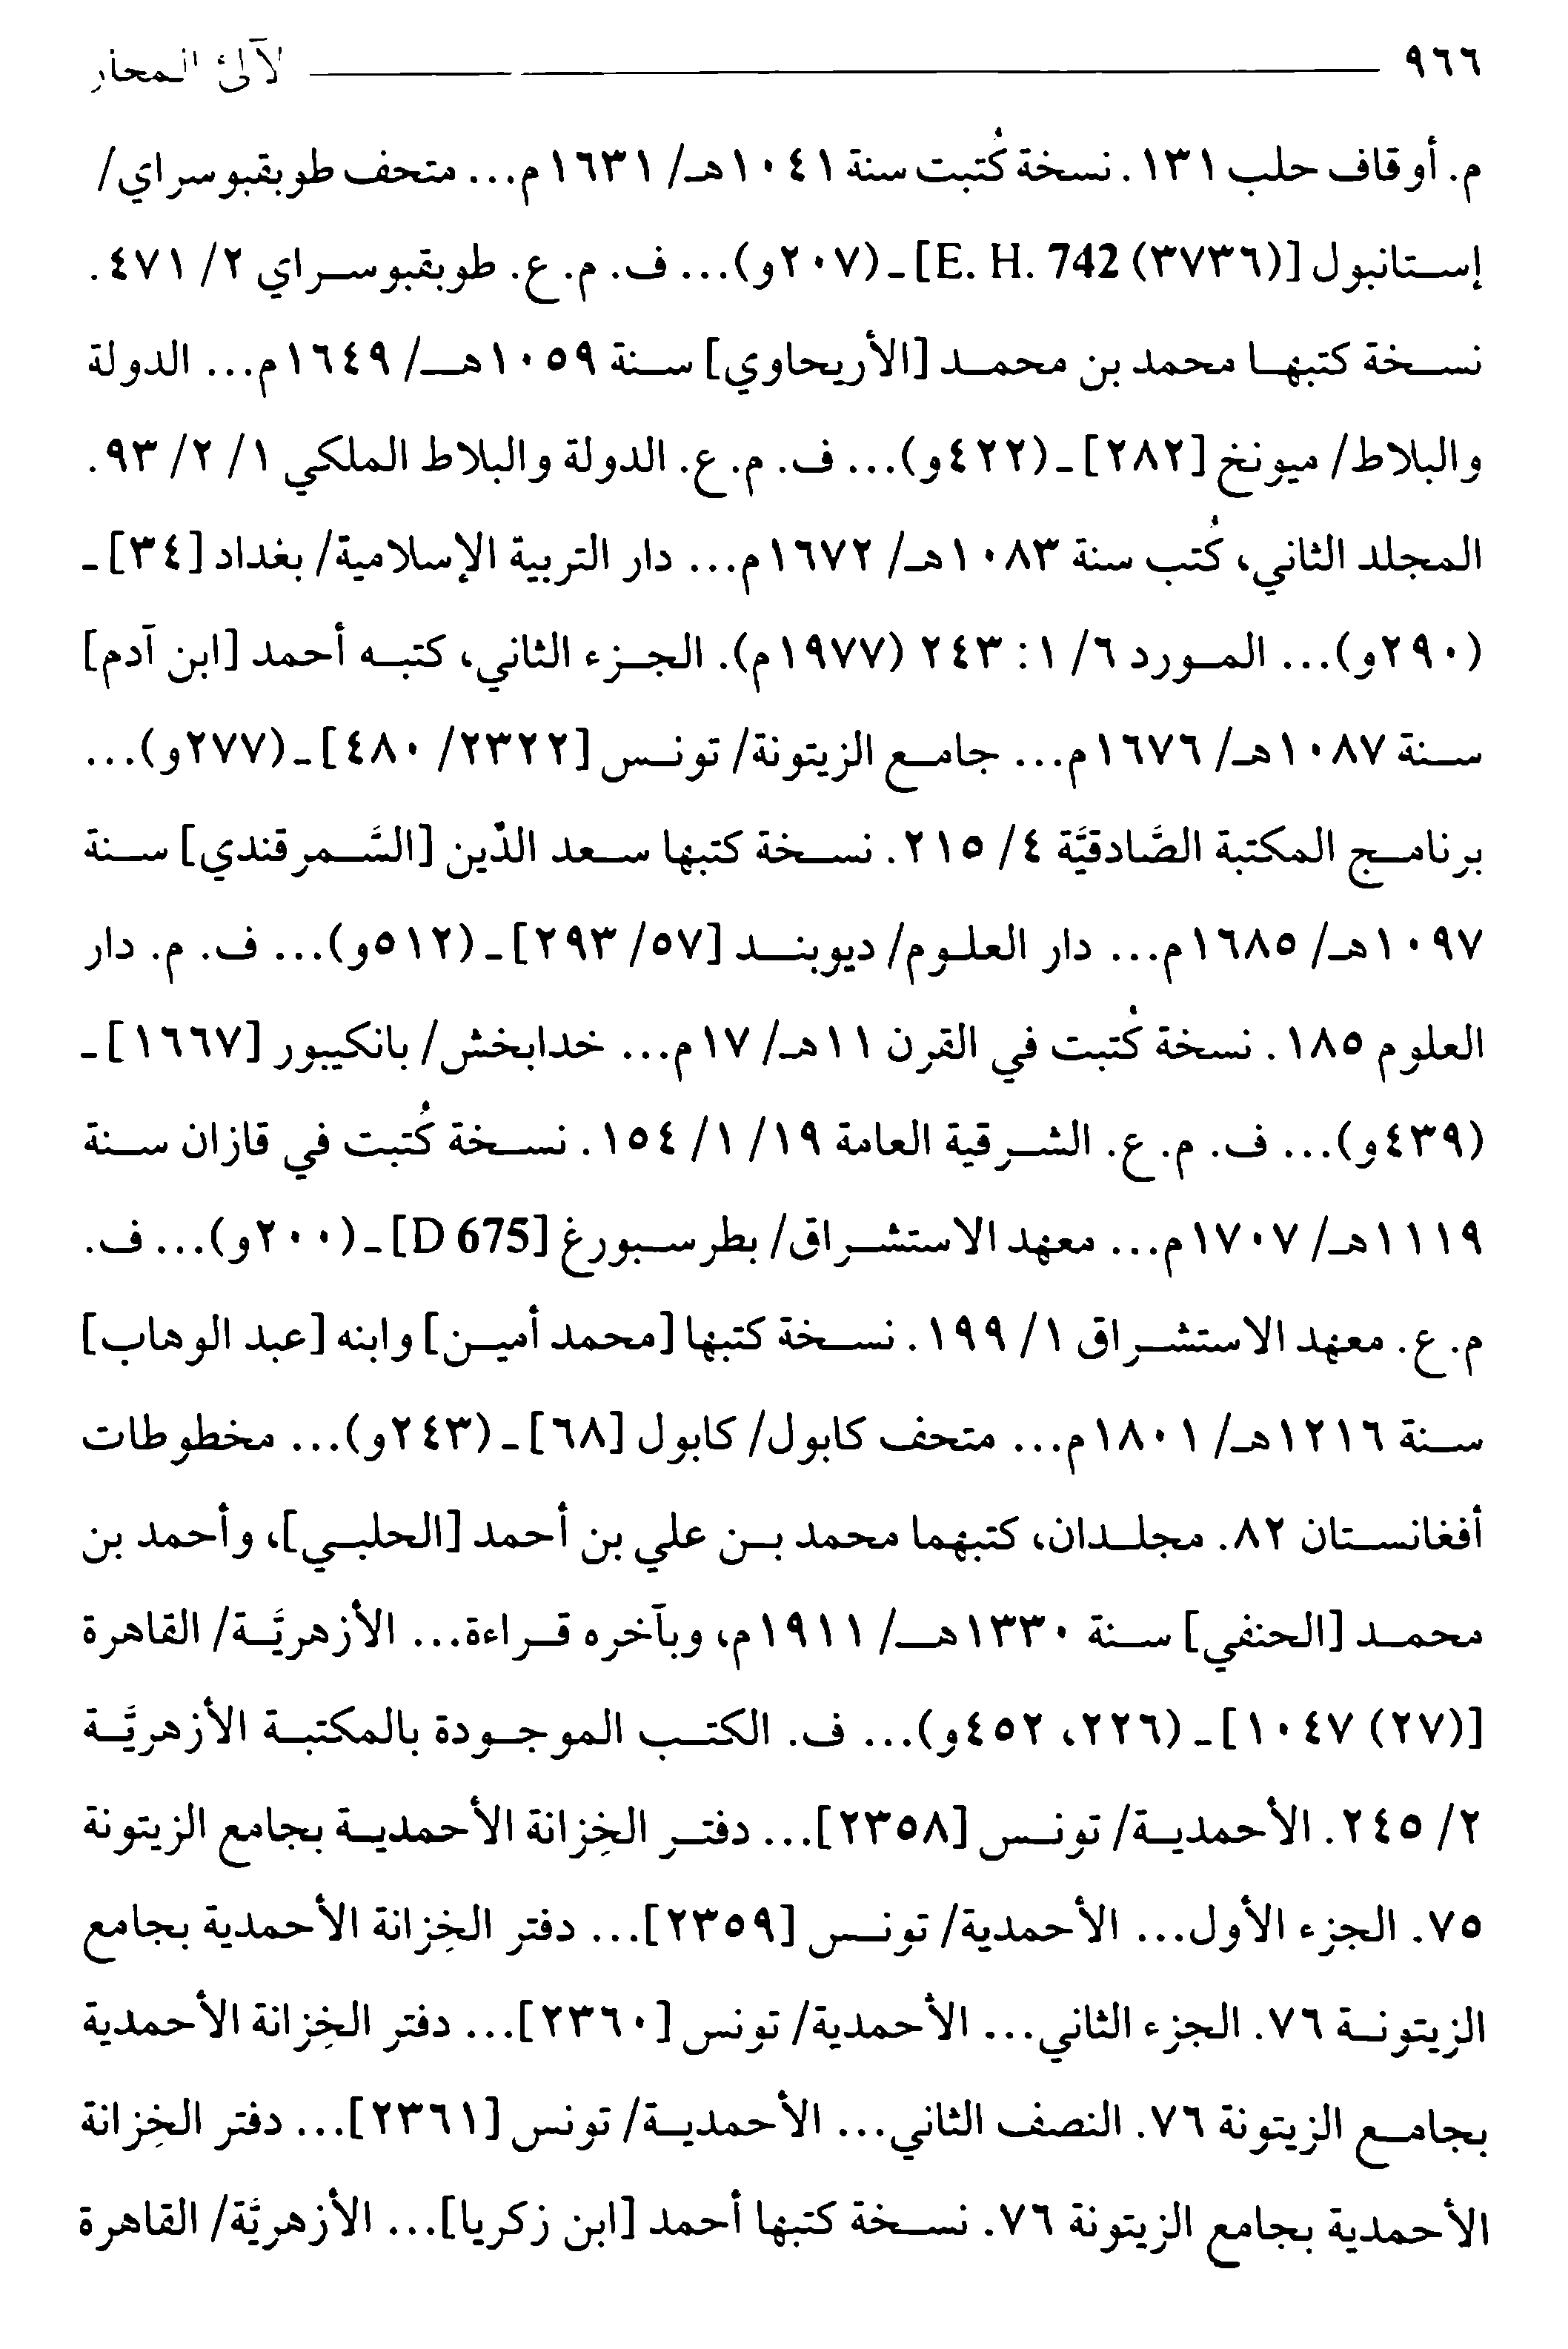 ٩٦٦ لآلئ المحار
م. أوقاف حلب ١٣١. نسخة كُتبت سنة ١٠٤١هـ/ ١٦٣١م... متحف طوبقبوسراي/
إستانبول [E. H. 742 (٣٧٣٦)] ـ (٢٠٧و)... ف. م. ع. طوبقبوسراي ٢/ ٤٧١.
نسخة كتبها محمد بن محمد [الأريحاوي] سنة ١٠٥٩هـ/ ١٦٤٩م... الدولة
والبلاط/ ميونخ [٢٨٢] ـ (٤٢٢و)... ف. م. ع. الدولة والبلاط الملكي ١/ ٢/ ٩٣.
المجلد الثاني، كُتب سنة ١٠٨٣هـ/ ١٦٧٢م... دار التربية الإسلامية/ بغداد [٣٤] ـ
(٢٩٠و)... المورد ٦/ ١: ٢٤٣ (١٩٧٧م). الجزء الثاني، كتبه أحمد [ابن آدم]
سنة ١٠٨٧هـ/ ١٦٧٦م... جامع الزيتونة/ تونس [٢٣٢٢/ ٤٨٠] ـ (٢٧٧و)...
برنامج المكتبة الصَّادقيَّة ٤/ ٢١٥. نسخة كتبها سعد الدّين [السَّمرقندي] سنة
١٠٩٧هـ/ ١٦٨٥م... دار العلوم/ ديوبند [٥٧/ ٢٩٣] ـ (٥١٢و)... ف. م. دار
العلوم ١٨٥. نسخة كُتبت في القرن ١١هـ/ ١٧م... خدابخش/ بانكيبور [١٦٦٧] ـ
(٤٣٩و)... ف. م. ع. الشرقية العامة ١٩/ ١/ ١٥٤. نسخة كُتبت في قازان سنة
١١١٩هـ/ ١٧٠٧م... معهد الاستشراق/ بطرسبورغ [D 675] ـ (٢٠٠و)... ف.
م. ع. معهد الاستشراق ١/ ١٩٩. نسخة كتبها [محمد أمين] وابنه [عبد الوهاب]
سنة ١٢١٦هـ/ ١٨٠١م... متحف كابول/ كابول [٦٨] ـ (٢٤٣و)... مخطوطات
أفغانستان ٨٢. مجلدان، كتبهما محمد بن علي بن أحمد [الحلبي]، وأحمد بن
محمد [الحنفي] سنة ١٣٣٠هـ/ ١٩١١م، وبآخره قراءة... الأزهريَّة/ القاهرة
[(٢٧) ١٠٤٧] ـ (٢٢٦، ٤٥٢و)... ف. الكتب الموجودة بالمكتبة الأزهريَّة
٢/ ٢٤٥. الأحمدية/ تونس [٢٣٥٨]... دفتر الخِزانة الأحمدية بجامع الزيتونة
٧٥. الجزء الأول... الأحمدية/ تونس [٢٣٥٩]... دفتر الخِزانة الأحمدية بجامع
الزيتونة ٧٦. الجزء الثاني... الأحمدية/ تونس [٢٣٦٠]... دفتر الخِزانة الأحمدية
بجامع الزيتونة ٧٦. النصف الثاني... الأحمدية/ تونس [٢٣٦١]... دفتر الخِزانة
الأحمدية بجامع الزيتونة ٧٦. نسخة كتبها أحمد [ابن زكريا]... الأزهريَّة/ القاهرة